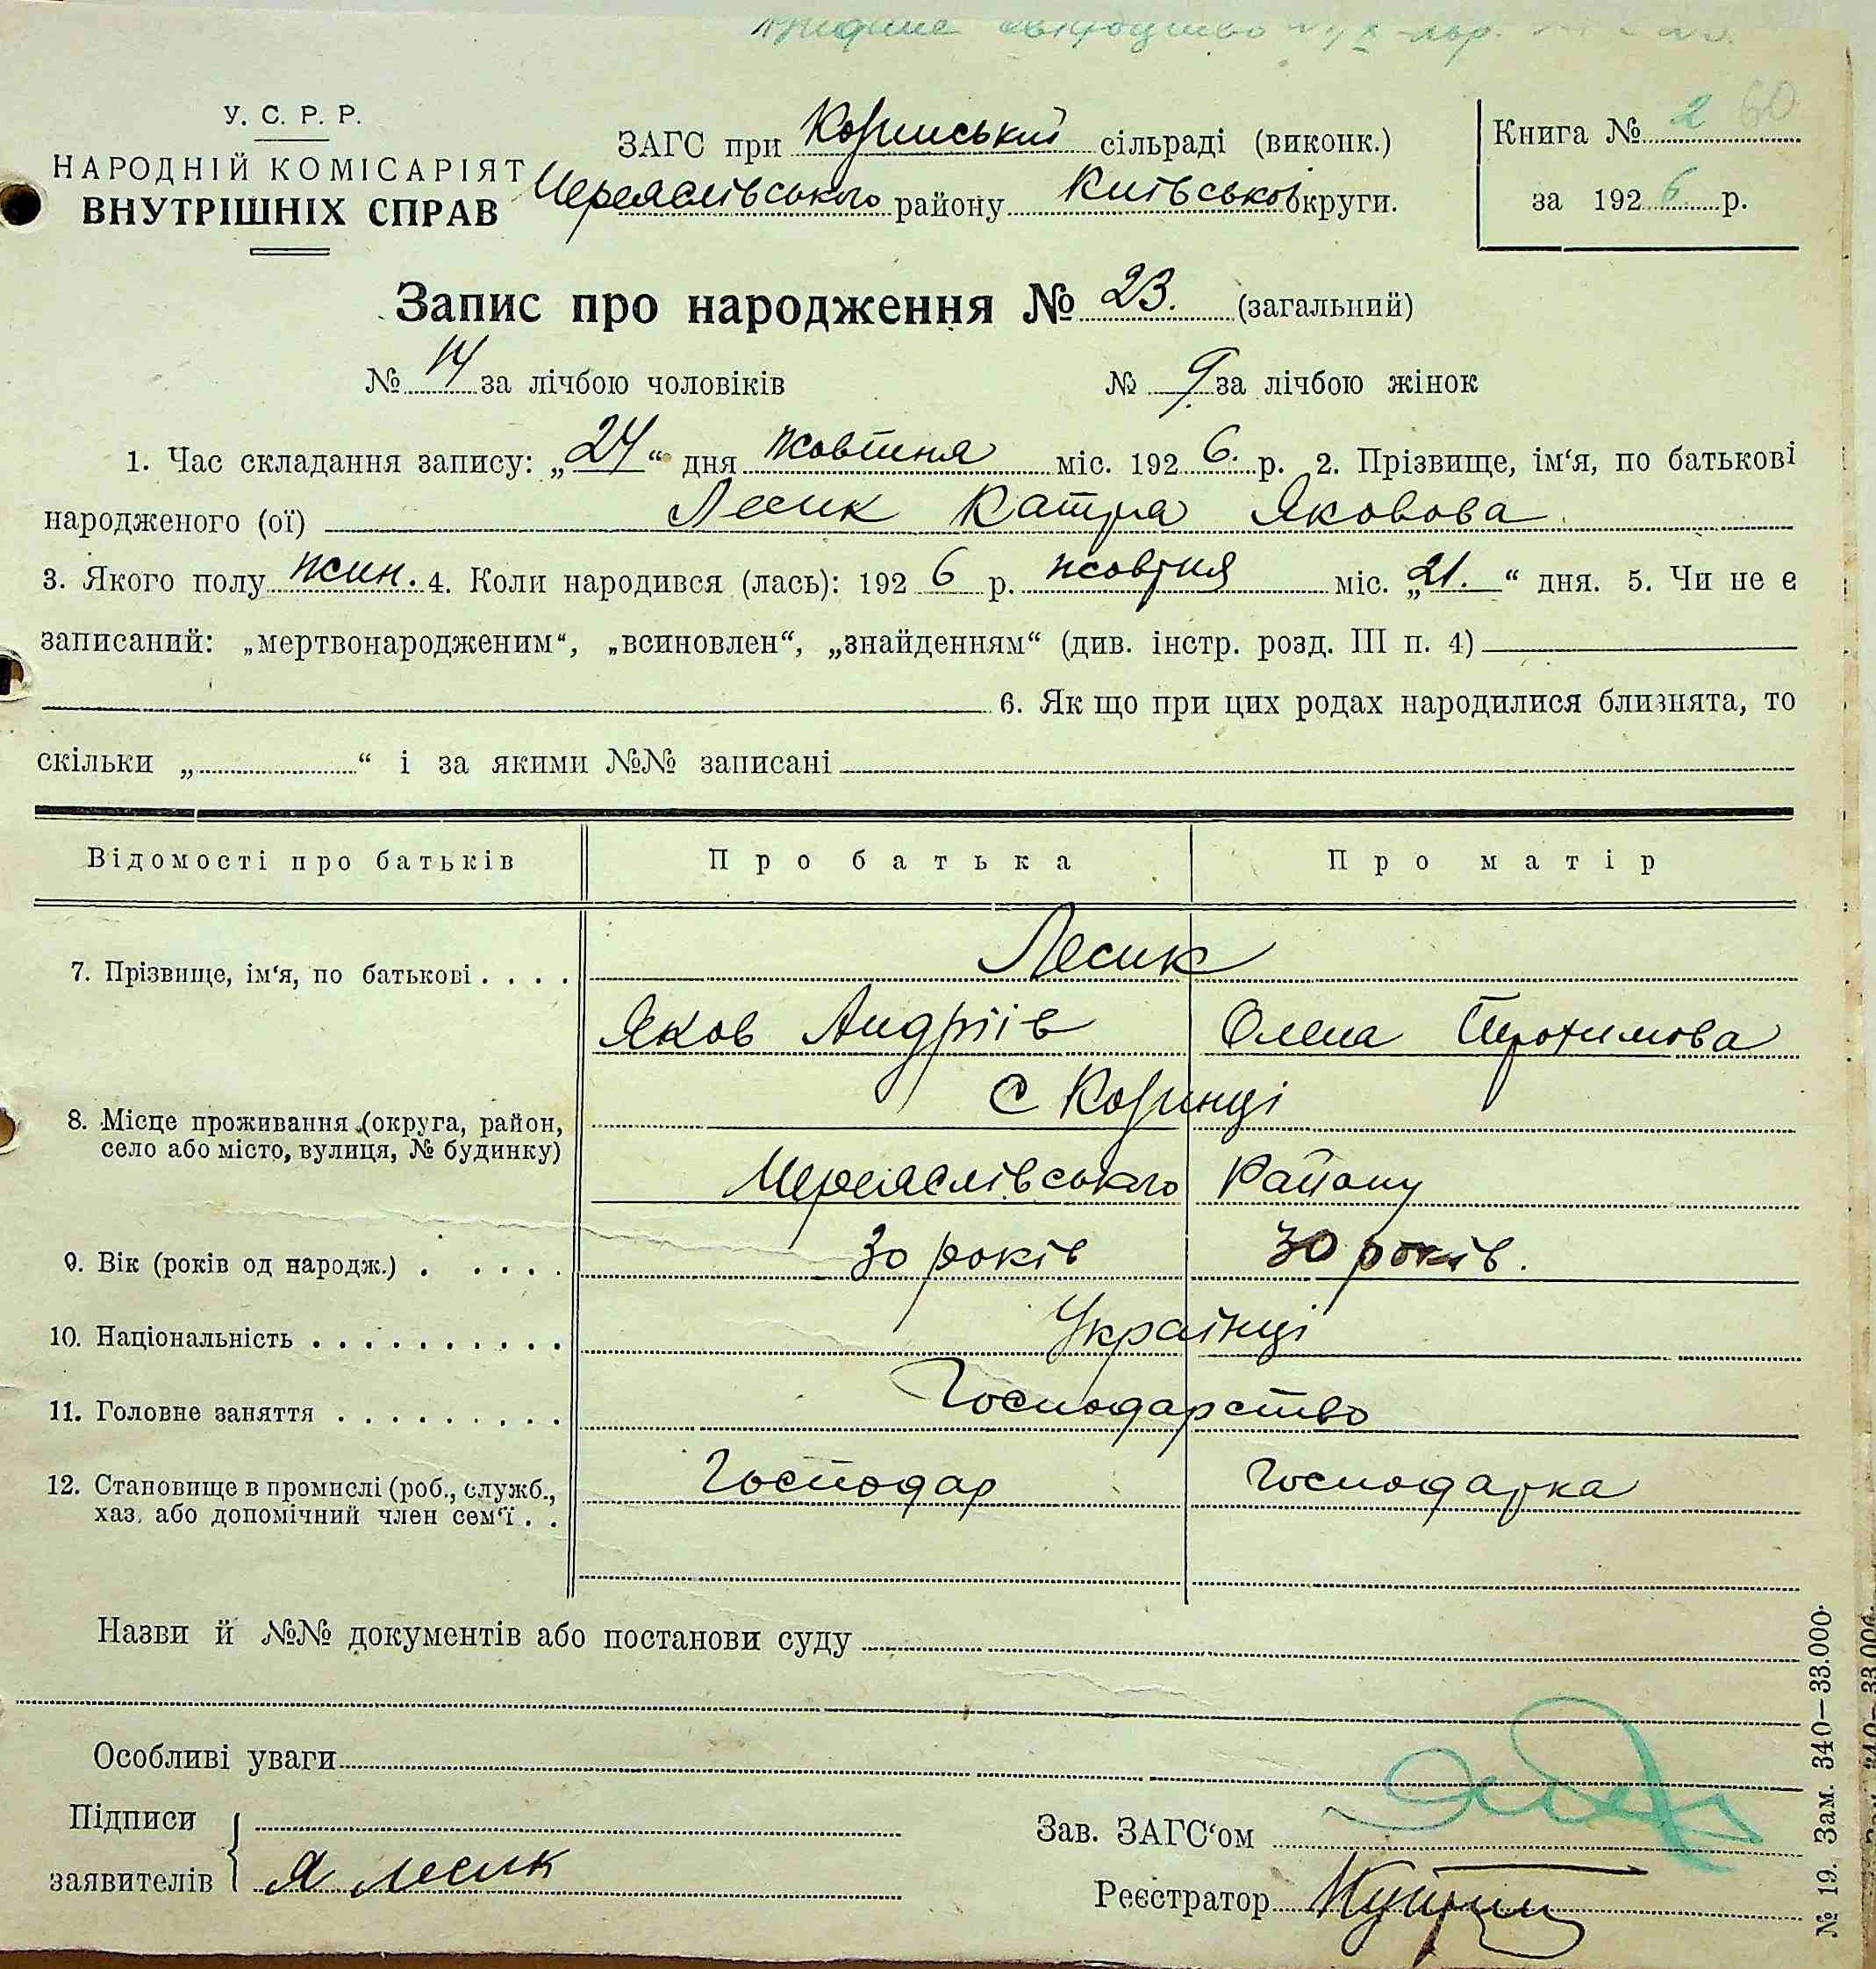 У. С. Р. Р.
НАРОДНІЙ КОМІСАРІЯТ
ВНУТРІШНІХ СПРАВ
ЗАГС при сільраді (виконк.)
Переяслівського району Київської округи.
Книга № 2 60
за 1926 р.
Запис про народження № 23. (загальний)
№ 14 за лічбою чоловіків № 9 за лічбою жінок
1. Час складання запису: „24“ дня жовтня міс. 1926. р. 2. Прізвище, ім‘я, по батькові
народженого (ої) Лесик Катря Яковова
3. Якого полу жин. 4. Коли народився (лась): 1926 р. жовтня міс. „21.“ дня. 5. Чи не є
записаний: „мертвонародженим“, „всиновлен“, „знайденням“ (див. інстр. розд. III п. 4)
6. Як що при цих родах народилися близнята, то
скільки „ “ і за якими №№ записані
Відомості про батьків Про батька Про матір
7. Прізвище, ім‘я, по батькові . . . . Лесик
Яков Андріїв Олена Трохимова
8. Місце проживання (округа, район, С
село або місто, вулиця, № будинку)
Переяслівського Району
9. Вік (років од народж.) . . . . . 30 років 30 років.
10. Національність . . . . . . . . . . Українці
11. Головне заняття . . . . . . . . . Господарство
12. Становище в промислі (роб., служб., Господар Господарка
хаз. або допомічний член сем‘ї . .
Назви й №№ документів або постанови суду
Особливі уваги
Підписи
заявителів Я Лесик
Зав. ЗАГС‘ом
Реєстратор
№ 19. Зам. 340—33.000.